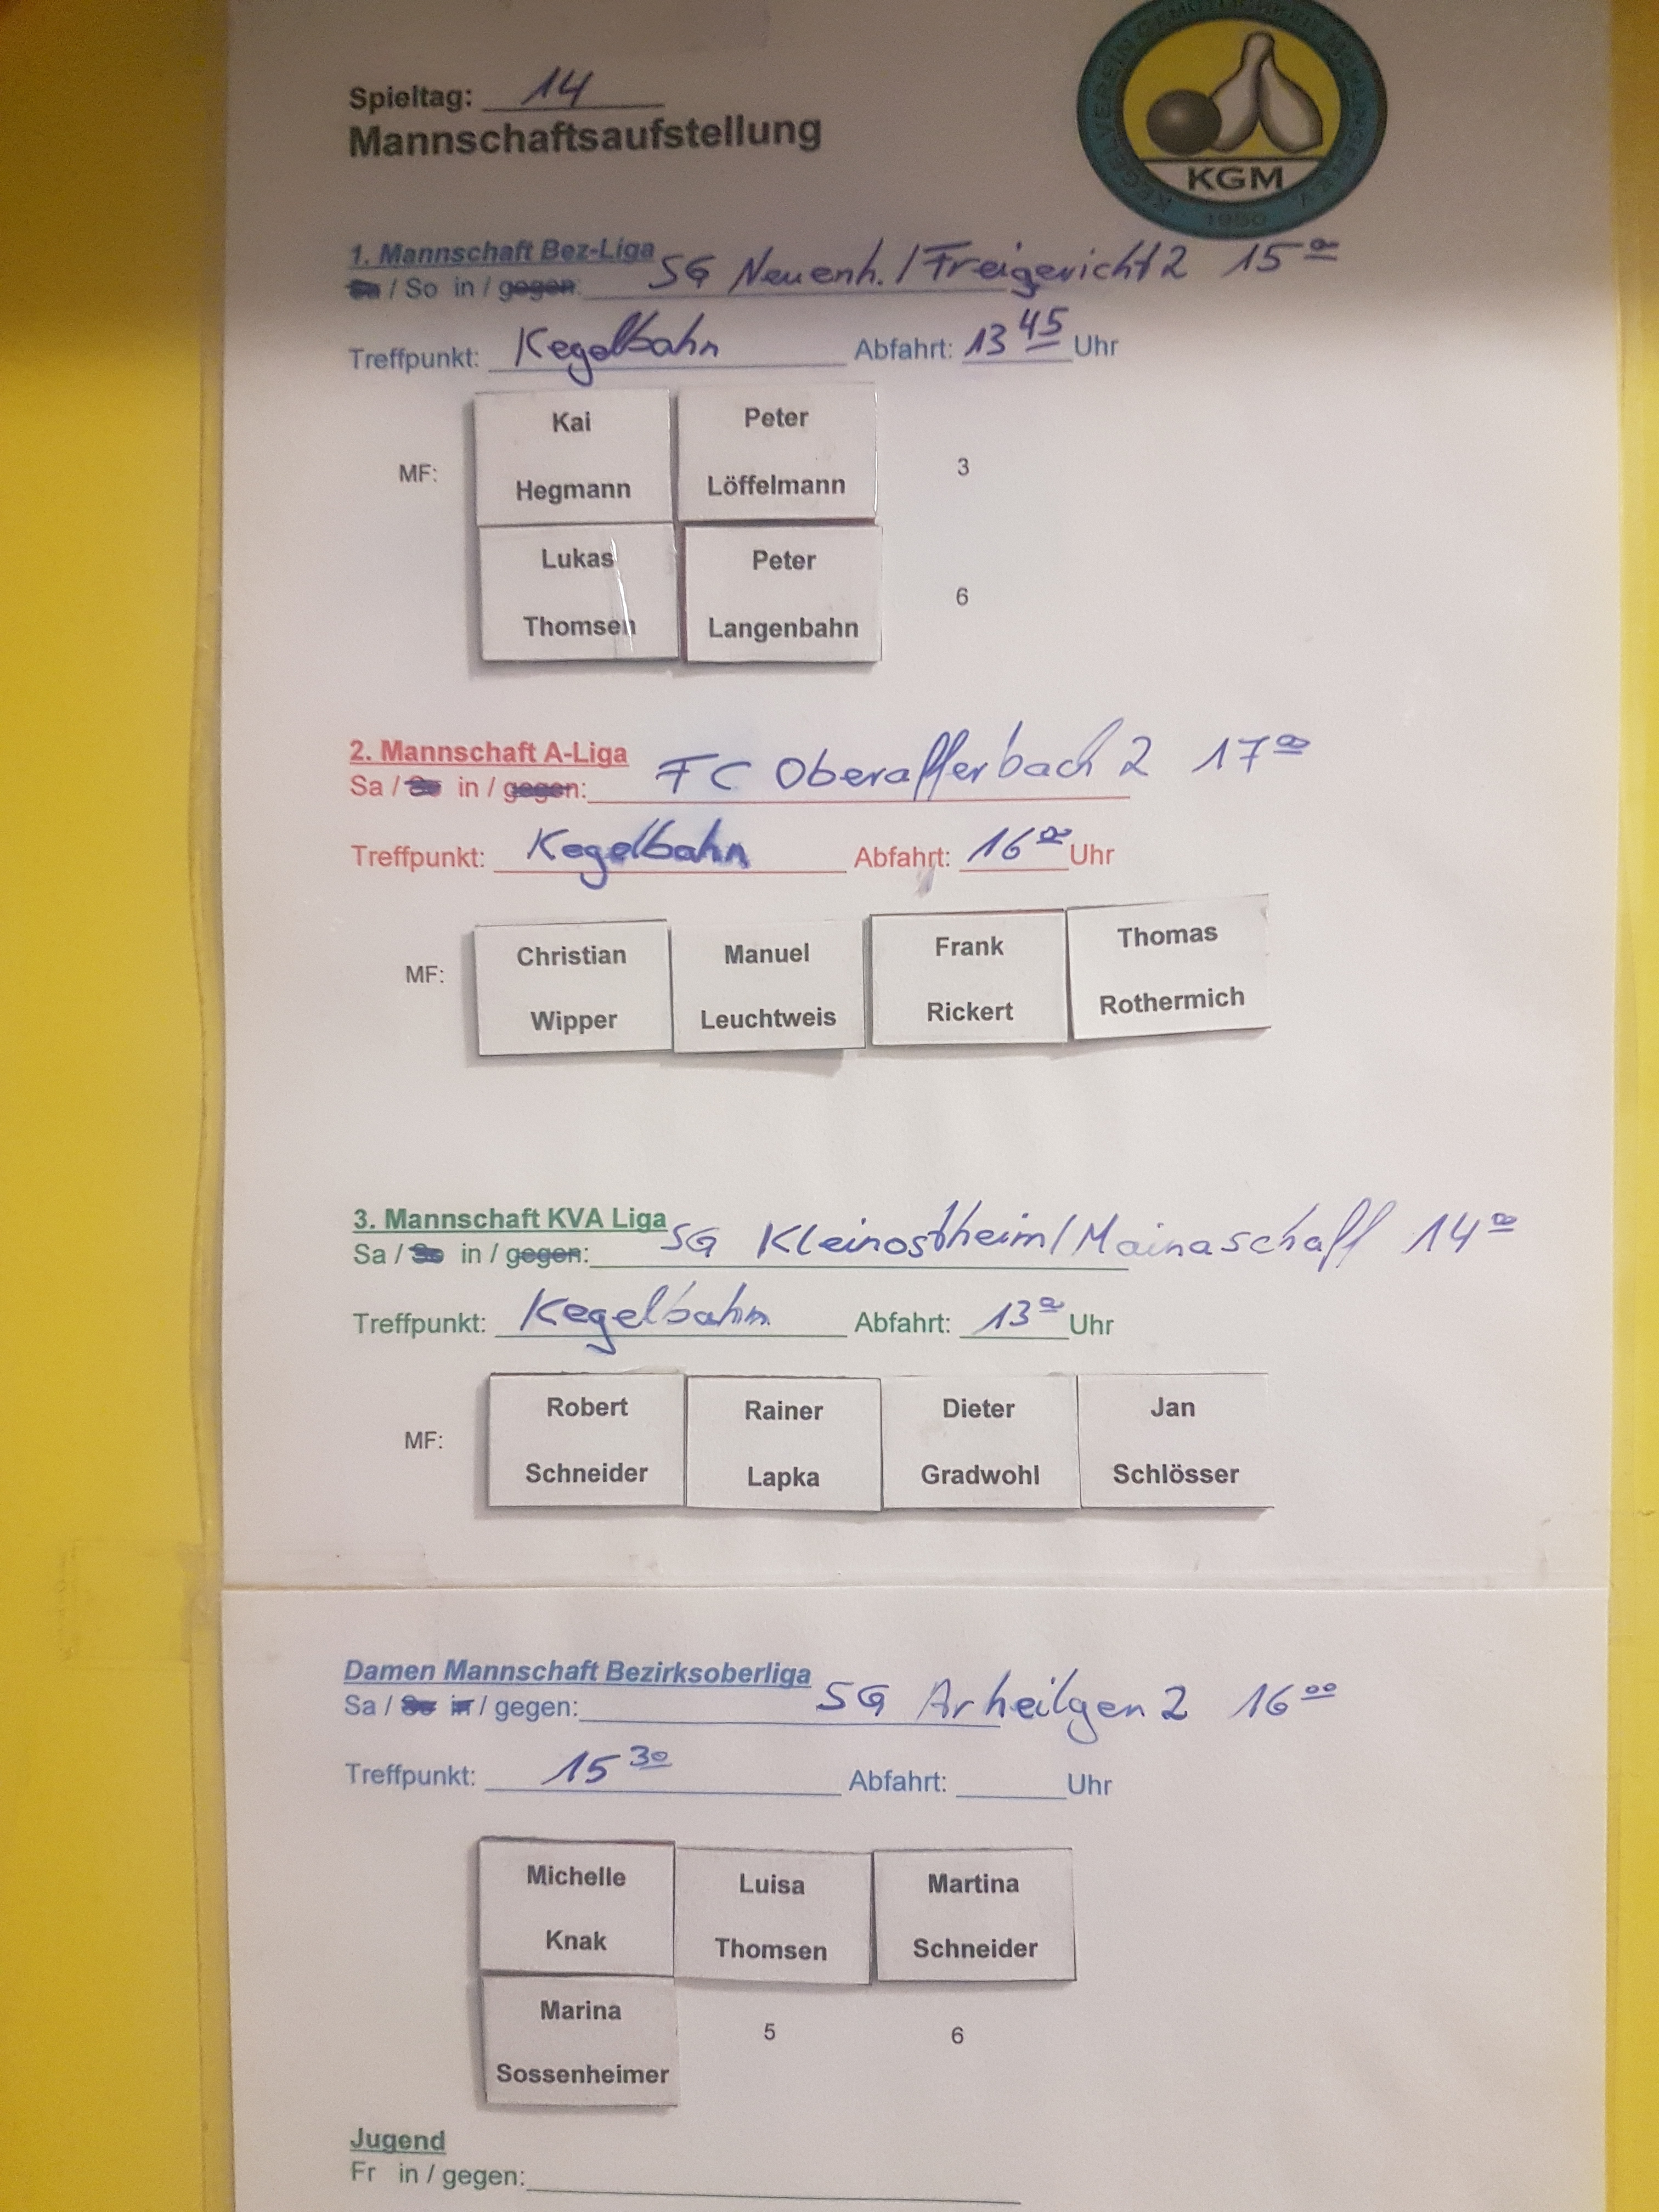 Spieltag: 14
Mannschaftsaufstellung
KGM
1950
1. Mannschaft Bez-Liga SG Neuenh. / Freigericht 2 15 00
Sa / So in / gegen:
Treffpunkt: Kegelbahn Abfahrt: 13 45 Uhr
Kai Peter
MF: 3
Hegmann Löffelmann
Lukas Peter
6
Thomsen Langenbahn
2. Mannschaft A-Liga FC Oberafferbach 2 17 00
Sa / So in / gegen:
Treffpunkt: Kegelbahn Abfahrt: 16 00 Uhr
Christian Manuel Frank Thomas
MF:
Wipper Leuchtweis Rickert Rothermich
3. Mannschaft KVA Liga SG Kleinostheim / Mainaschaff 14 00
Sa / So in / gegen:
Treffpunkt: Kegelbahn Abfahrt: 13 00 Uhr
Robert Rainer Dieter Jan
MF:
Schneider Lapka Gradwohl Schlösser
Damen Mannschaft Bezirksoberliga SG Arheilgen 2 16 00
Sa / So in / gegen:
Treffpunkt: 15 30 Abfahrt: Uhr
Michelle Luisa Martina
Knak Thomsen Schneider
Marina
5 6
Sossenheimer
Jugend
Fr in / gegen: